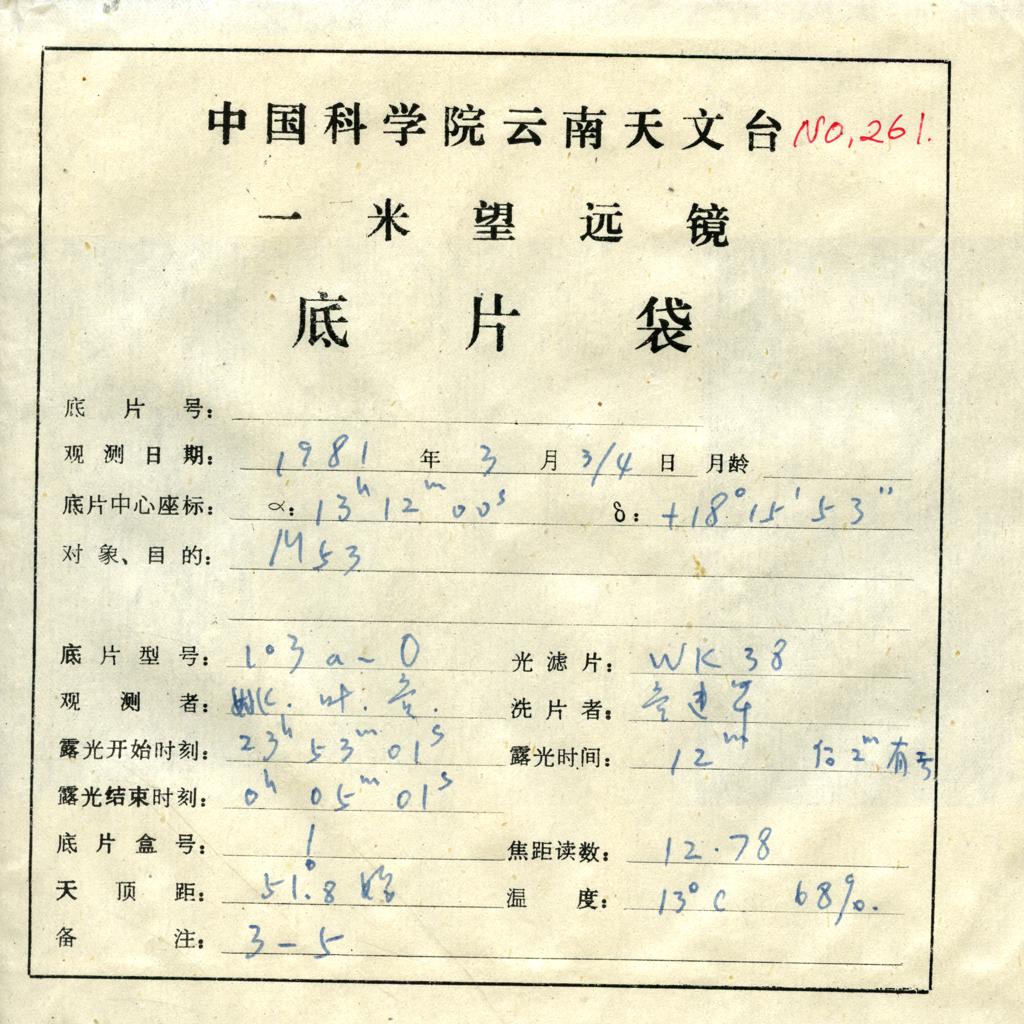 中国科学院云南天文台 NO,261.
一米望远镜
底片袋
底片号:
观测日期: 1981 年 3 月 3/4 日 月龄
底片中心座标: α: 13h 12m 00s δ: +18°15′53″
对象、目的: M53
底片型号: 103a-O 光滤片: WK 38
观测者: 叶. 洗片者:
露光开始时刻: 23h 53m 01s 露光时间: 12m 2m 有云
露光结束时刻: 0h 05m 01s
底片盒号: 1 焦距读数: 12.78
天顶距: 51°.8 温度: 13°C 68%.
备注: 3-5